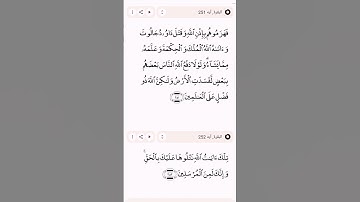 البقرة, آية 251
فَهَزَمُوهُم بِإِذْنِ ٱللَّهِ وَقَتَلَ دَاوُۥدُ جَالُوتَ
وَءَاتَىٰهُ ٱللَّهُ ٱلْمُلْكَ وَٱلْحِكْمَةَ وَعَلَّمَهُۥ
مِمَّا يَشَآءُ وَلَوْلَا دَفْعُ ٱللَّهِ ٱلنَّاسَ بَعْضَهُم
بِبَعْضٍ لَّفَسَدَتِ ٱلْأَرْضُ وَلَٰكِنَّ ٱللَّهَ ذُو
فَضْلٍ عَلَى ٱلْعَٰلَمِينَ
البقرة, آية 252
تِلْكَ ءَايَٰتُ ٱللَّهِ نَتْلُوهَا عَلَيْكَ بِٱلْحَقِّ ۚ
وَإِنَّكَ لَمِنَ ٱلْمُرْسَلِينَ